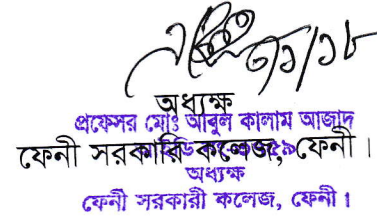 ৩/১/১৮
অধ্যক্ষ
প্রফেসর মোঃ আবুল কালাম আজাদ
ফেনী সরকারি কলেজ, ফেনী।
অধ্যক্ষ
ফেনী সরকারী কলেজ, ফেনী।